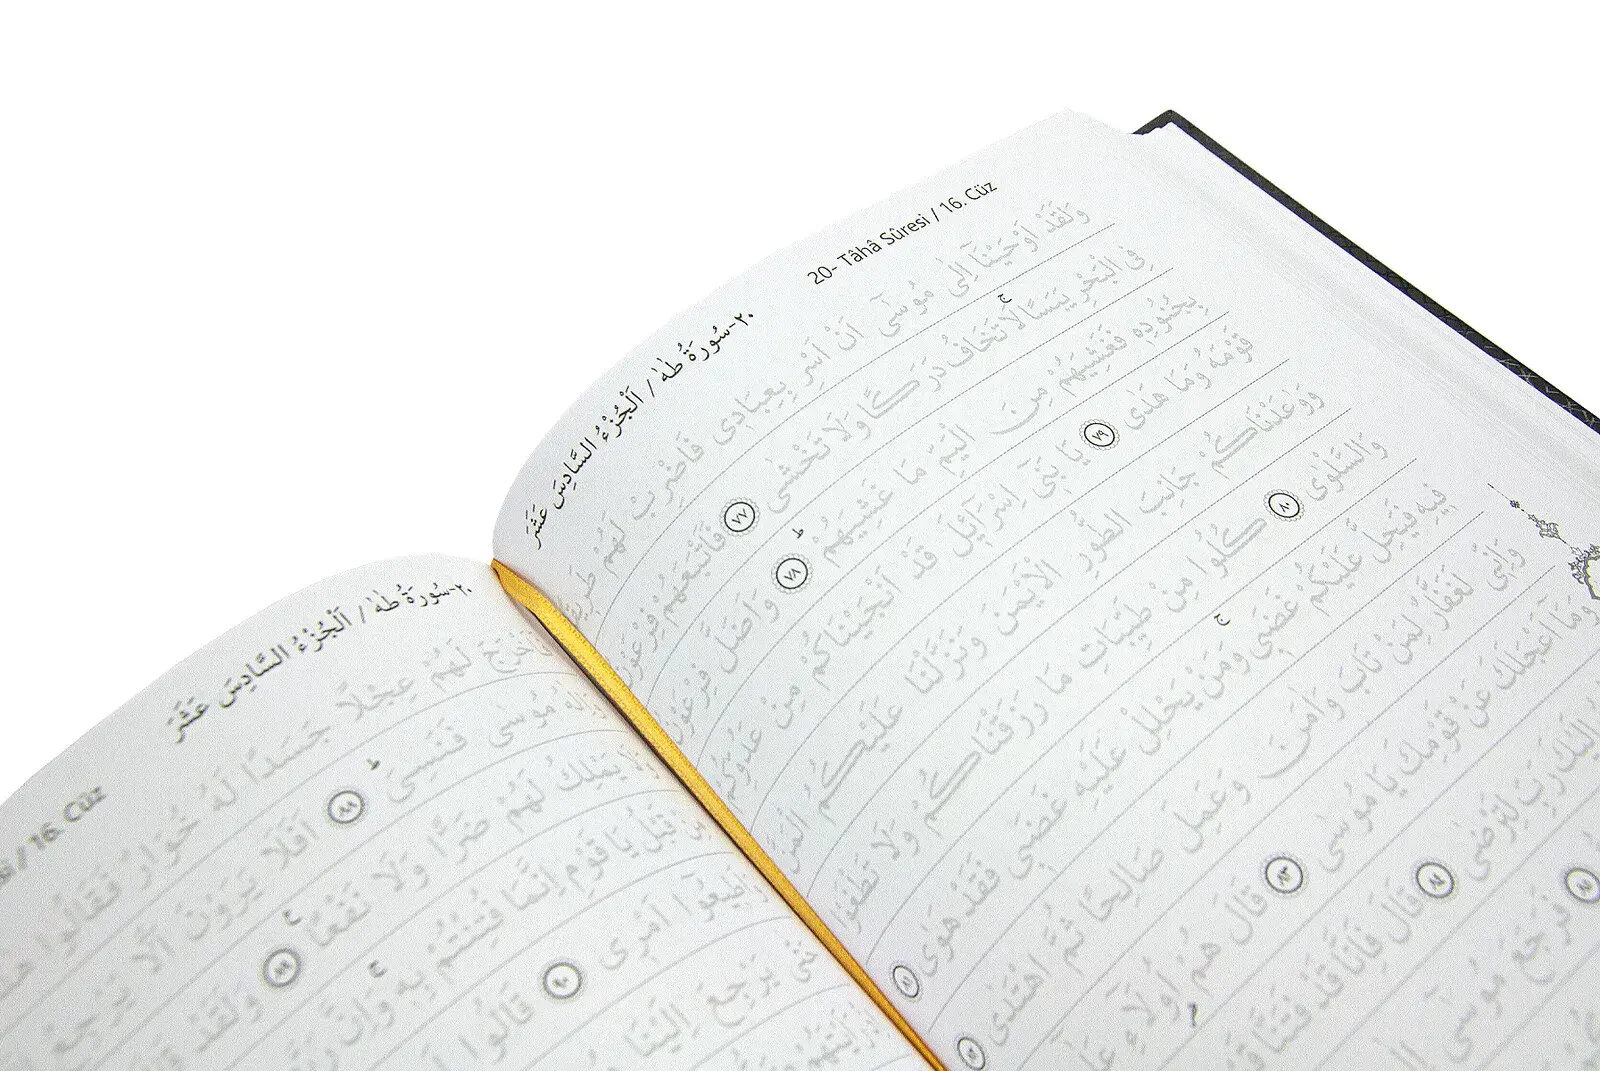 20- Tâhâ Sûresi / 16. Cüz
٢٠-سُورَةُ طٰهٰ / اَلْجُزْءُ السَّادِسَ عَشَرَ
وَلَقَدْ اَوْحَيْنَٓا اِلٰى مُوسٰٓى اَنْ اَسْرِ بِعِبَادٖى فَاضْرِبْ لَهُمْ
فِى الْبَحْرِ يَبَسًا لَا تَخَافُ دَرَكًا وَلَا تَخْشٰى ٧٧ فَاَتْبَعَهُمْ فِرْعَوْنُ
بِجُنُودِهٖ فَغَشِيَهُمْ مِنَ الْيَمِّ مَا غَشِيَهُمْ ٧٨ وَاَضَلَّ فِرْعَوْنُ
قَوْمَهُ وَمَا هَدٰى ٧٩ يَا بَنٖٓى اِسْرَٓائٖلَ قَدْ اَنْجَيْنَاكُمْ مِنْ عَدُوِّكُمْ
وَوٰعَدْنَاكُمْ جَانِبَ الطُّورِ الْاَيْمَنَ وَنَزَّلْنَا عَلَيْكُمُ الْمَنَّ
وَالسَّلْوٰى ٨٠ كُلُوا مِنْ طَيِّبَاتِ مَا رَزَقْنَاكُمْ وَلَا تَطْغَوْا
فٖيهِ فَيَحِلَّ عَلَيْكُمْ غَضَبٖى وَمَنْ يَحْلِلْ عَلَيْهِ غَضَبٖى فَقَدْ هَوٰى ٨١
وَاِنّٖى لَغَفَّارٌ لِمَنْ تَابَ وَاٰمَنَ وَعَمِلَ صَالِحًا ثُمَّ اهْتَدٰى ٨٢
وَمَٓا اَعْجَلَكَ عَنْ قَوْمِكَ يَا مُوسٰى ٨٣ قَالَ هُمْ اُولَٓاءِ
اِلَيْكَ رَبِّ لِتَرْضٰى ٨٤ قَالَ فَاِنَّا قَدْ فَتَنَّا
٨٥ فَرَجَعَ مُوسٰٓى
٢٠-سُورَةُ طٰهٰ / اَلْجُزْءُ السَّادِسَ عَشَرَ
/ 16. Cüz
فَاَخْرَجَ لَهُمْ عِجْلًا جَسَدًا لَهُ خُوَارٌ فَقَالُوا
مُوسٰى فَنَسِىَ ٨٨ اَفَلَا يَرَوْنَ اَلَّا يَرْجِعُ
يَمْلِكُ لَهُمْ ضَرًّا وَلَا نَفْعًا ٨٩ وَلَقَدْ
قَبْلُ يَا قَوْمِ اِنَّمَا فُتِنْتُمْ بِهٖ وَاِنَّ
اَمْرٖى ٩٠ قَالُوا
حَتّٰى يَرْجِعَ اِلَيْنَا